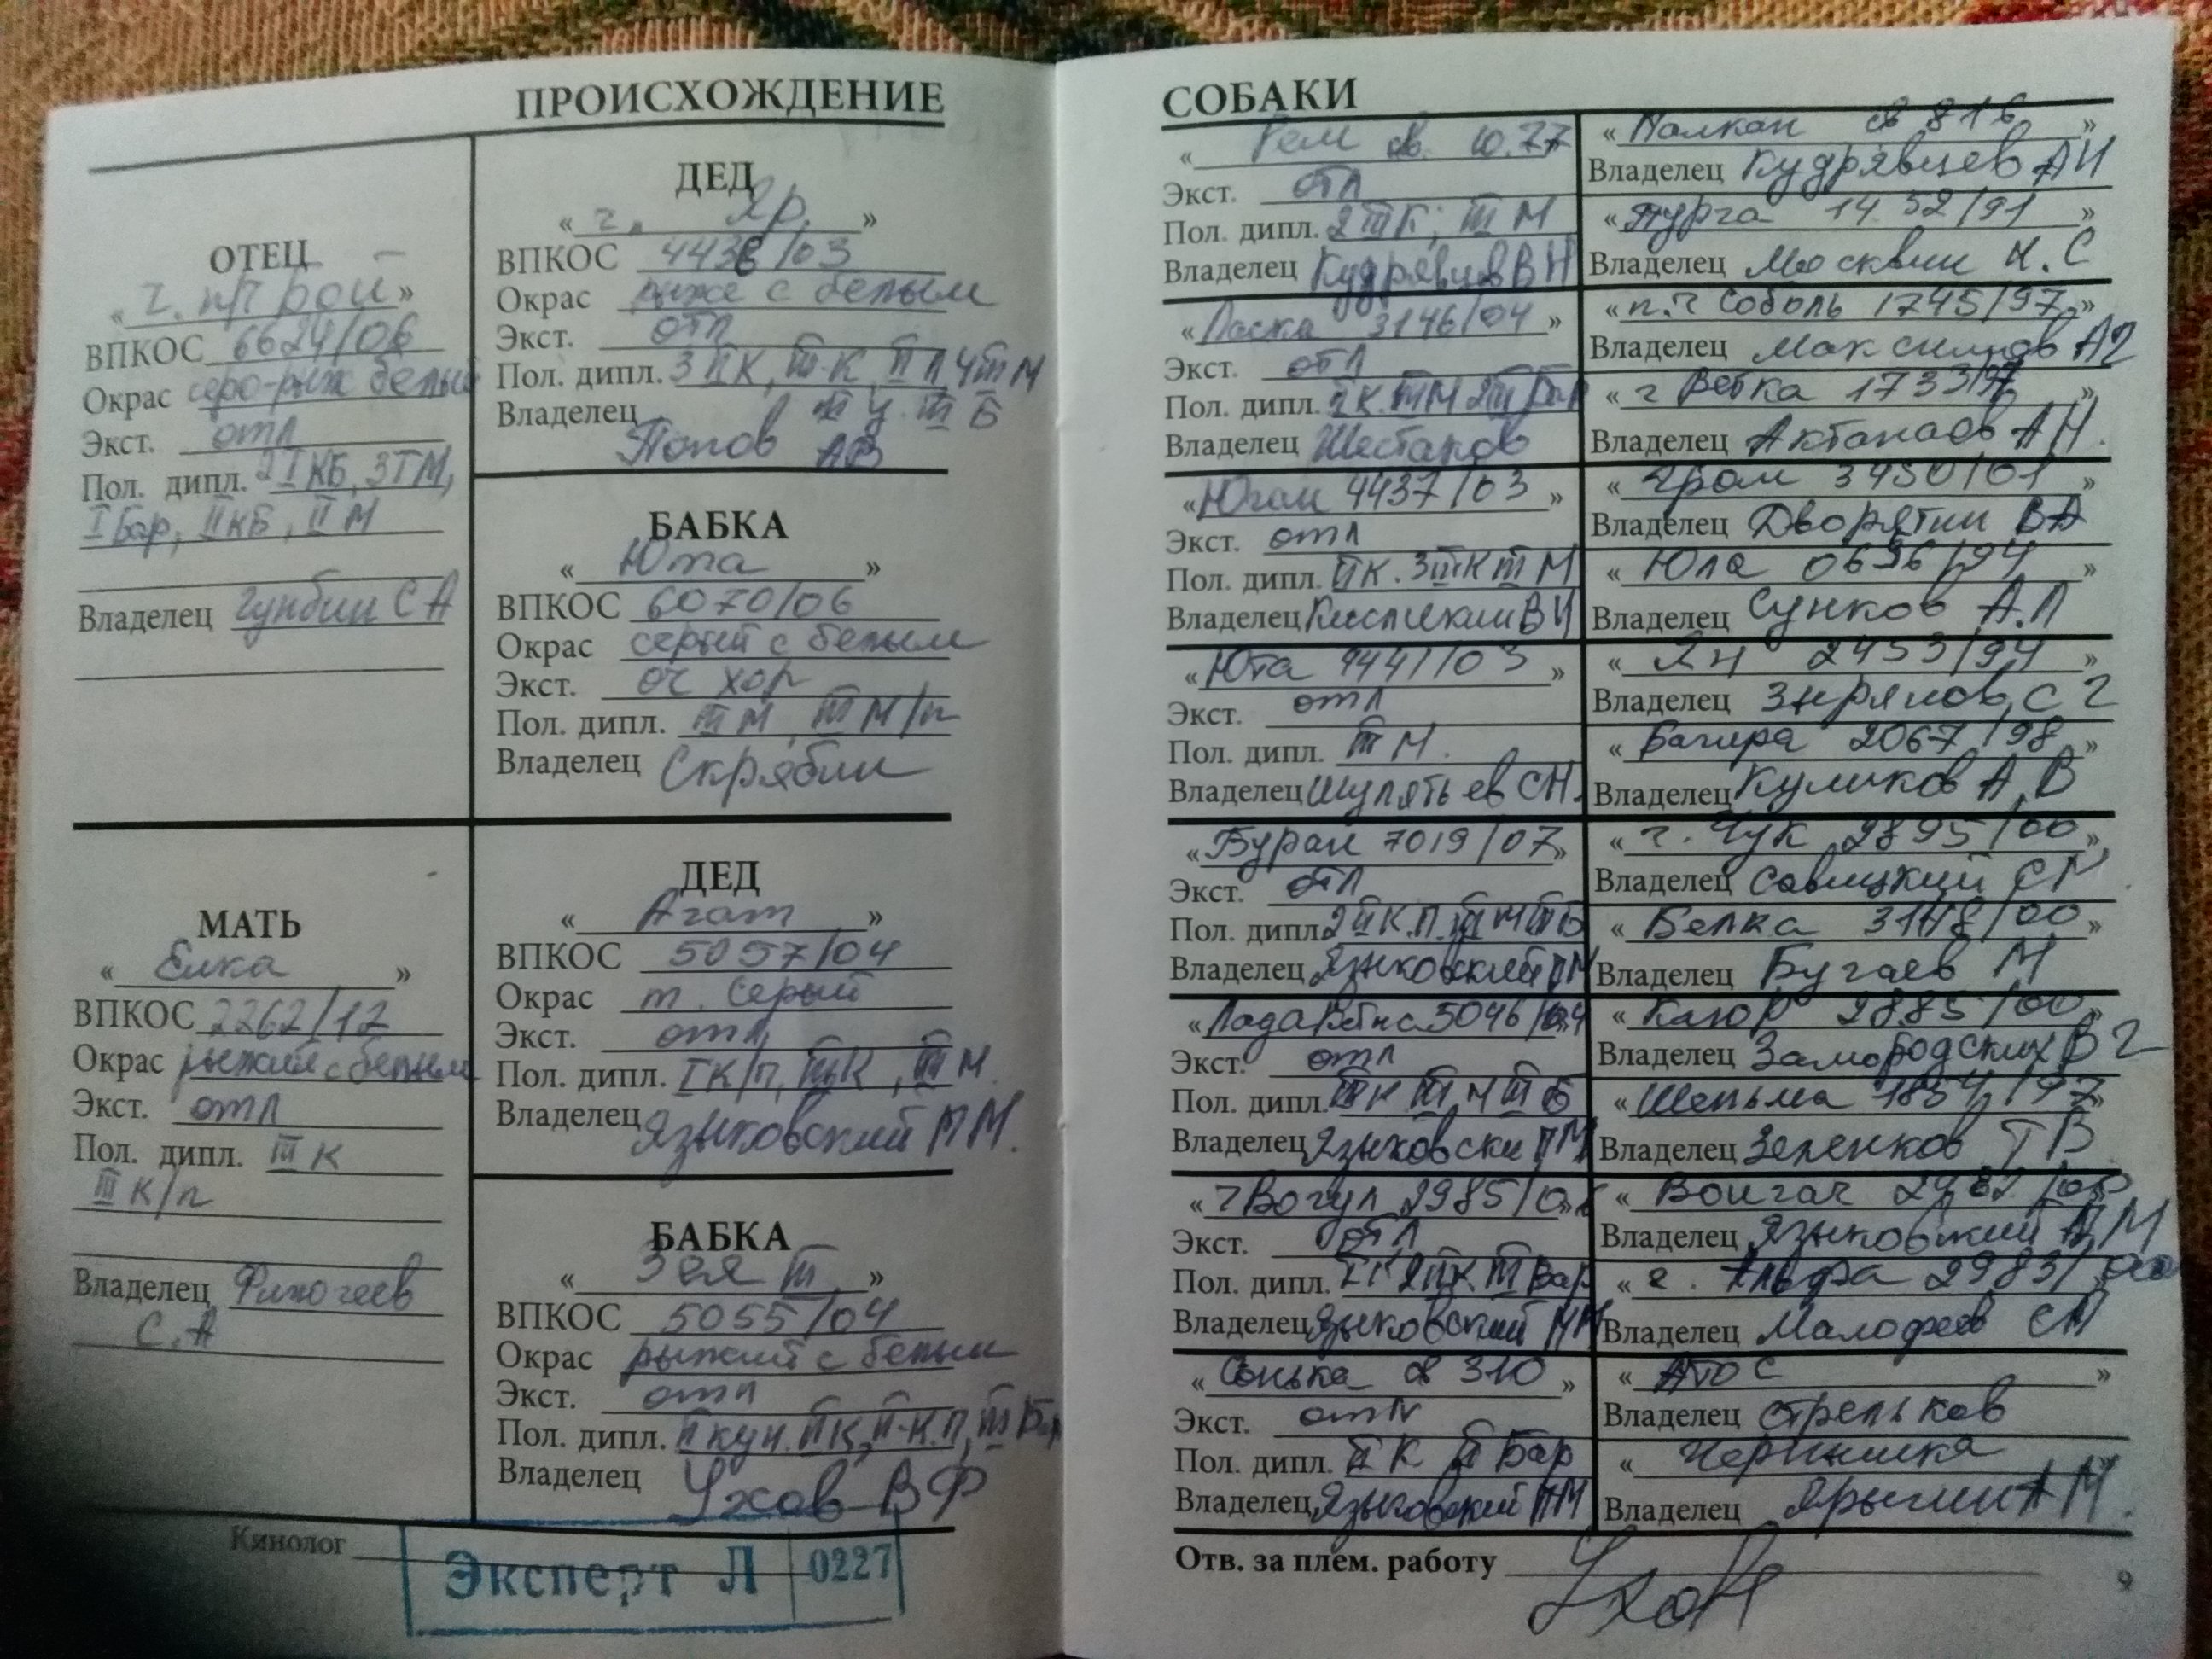 ПРОИСХОЖДЕНИЕ
ОТЕЦ
« ч. п/ч Бой »
ВПКОС 6624/06
Окрас серо-рыж белый
Экст. отл
Пол. дипл. 2 I КБ, 3 I М,
I Бар, II КБ, II М
Владелец Гунбин С А
МАТЬ
« Елка »
ВПКОС 2262/12
Окрас рыжий с белым
Экст. отл
Пол. дипл. III К
III К/п
Владелец
С.А
ДЕД
« ч. Яр. »
ВПКОС 4436/03
Окрас рыже с белым
Экст. отл
Пол. дипл. 3 II К, III К, II Л 4 III М
Владелец II у. III Б
Попов АВ
БАБКА
« Юта »
ВПКОС 6070/06
Окрас серый с белым
Экст. оч хор
Пол. дипл. III М, III М/п
Владелец Скрябин
ДЕД
« Агат »
ВПКОС 5057/04
Окрас т. серый
Экст. отл
Пол. дипл. I К/п, III К, III М
Владелец Языковский П М.
БАБКА
« Зея III »
ВПКОС 5055/04
Окрас рыжий с белым
Экст. отл
Пол. дипл. II кун. II К, II К.П, III Бар
Владелец Ухов В Ф
Кинолог
Эксперт Л 0227
СОБАКИ
« Рем св. 10.77
Экст. отл
Пол. дипл. 2 III К; III М
Владелец Кудрявцев В Н
« Ласка 3146/04 »
Экст. отл
Пол. дипл. 2К. III М 2 III Бар
Владелец Шестаков
« Юган 4437/03 »
Экст. отл
Пол. дипл. II К. 3 III К III М
Владелец
« Юта 4441/03 »
Экст. отл
Пол. дипл. III М.
Владелец Шулятьев С Н.
« Буран 7019/07 »
Экст. отл
Пол. дипл. 2 II К.П. III М III Б
Владелец Языковский П М
« Лада 5046/04 »
Экст. отл
Пол. дипл. III К III М III Б
Владелец Языковски П М
« ч Вогул 2985/0
Экст. отл
Пол. дипл. I К 2 II К III Бар
Владелец Языковский П М
« Сонька св 310 »
Экст. отл
Пол. дипл. II К II Бар
Владелец Языковский П М
« Полкан св 816 »
Владелец Кудрявцев А Н
« Пурга 1452/91 »
Владелец Москвин И. С
« п.ч Соболь 1745/97 »
Владелец Максимов А Г
« ч Ветка 1733/97 »
Владелец А Н.
« Гром 3450/01 »
Владелец Дворяткин В А
« Юла 0696/94 »
Владелец Сунков А.Л
« Ян 2453/94 »
Владелец Зырянов С Г
« Багира 2067/98 »
Владелец Куликов А. В
« ч. Чук 2895/00 »
Владелец Савицкий С
« Белка 3148/00 »
Владелец Бугаев М
« Кагор 2885/00
Владелец Замородских В Г
« Шельма 1854/97 »
Владелец Зеленков Т В
« Войгач 2982/00
Владелец Языковский П М
« ч. Альфа 2983/00
Владелец Малофеев С
« Атос »
Владелец Стрельков
« Чернышка »
Владелец Ярыгин А М.
Отв. за плем. работу
9